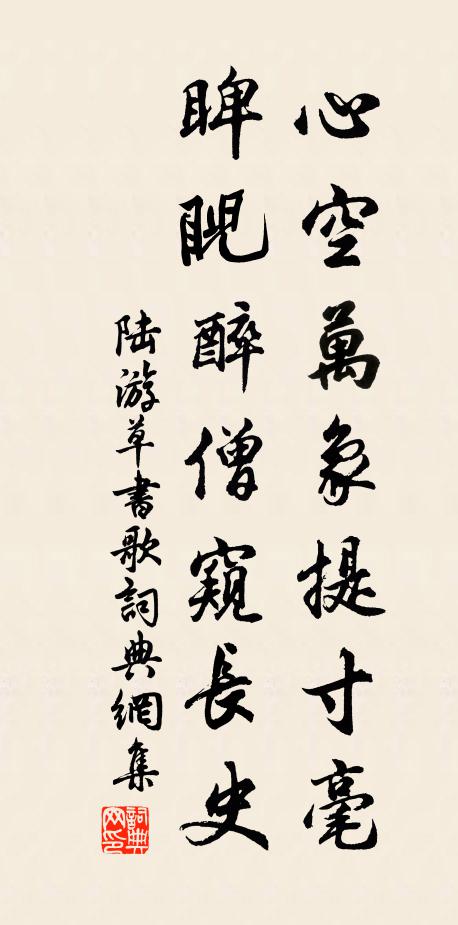 心空萬象提寸毫
睥睨醉僧窺長史
陆游草書歌詞典網集
詞典網印